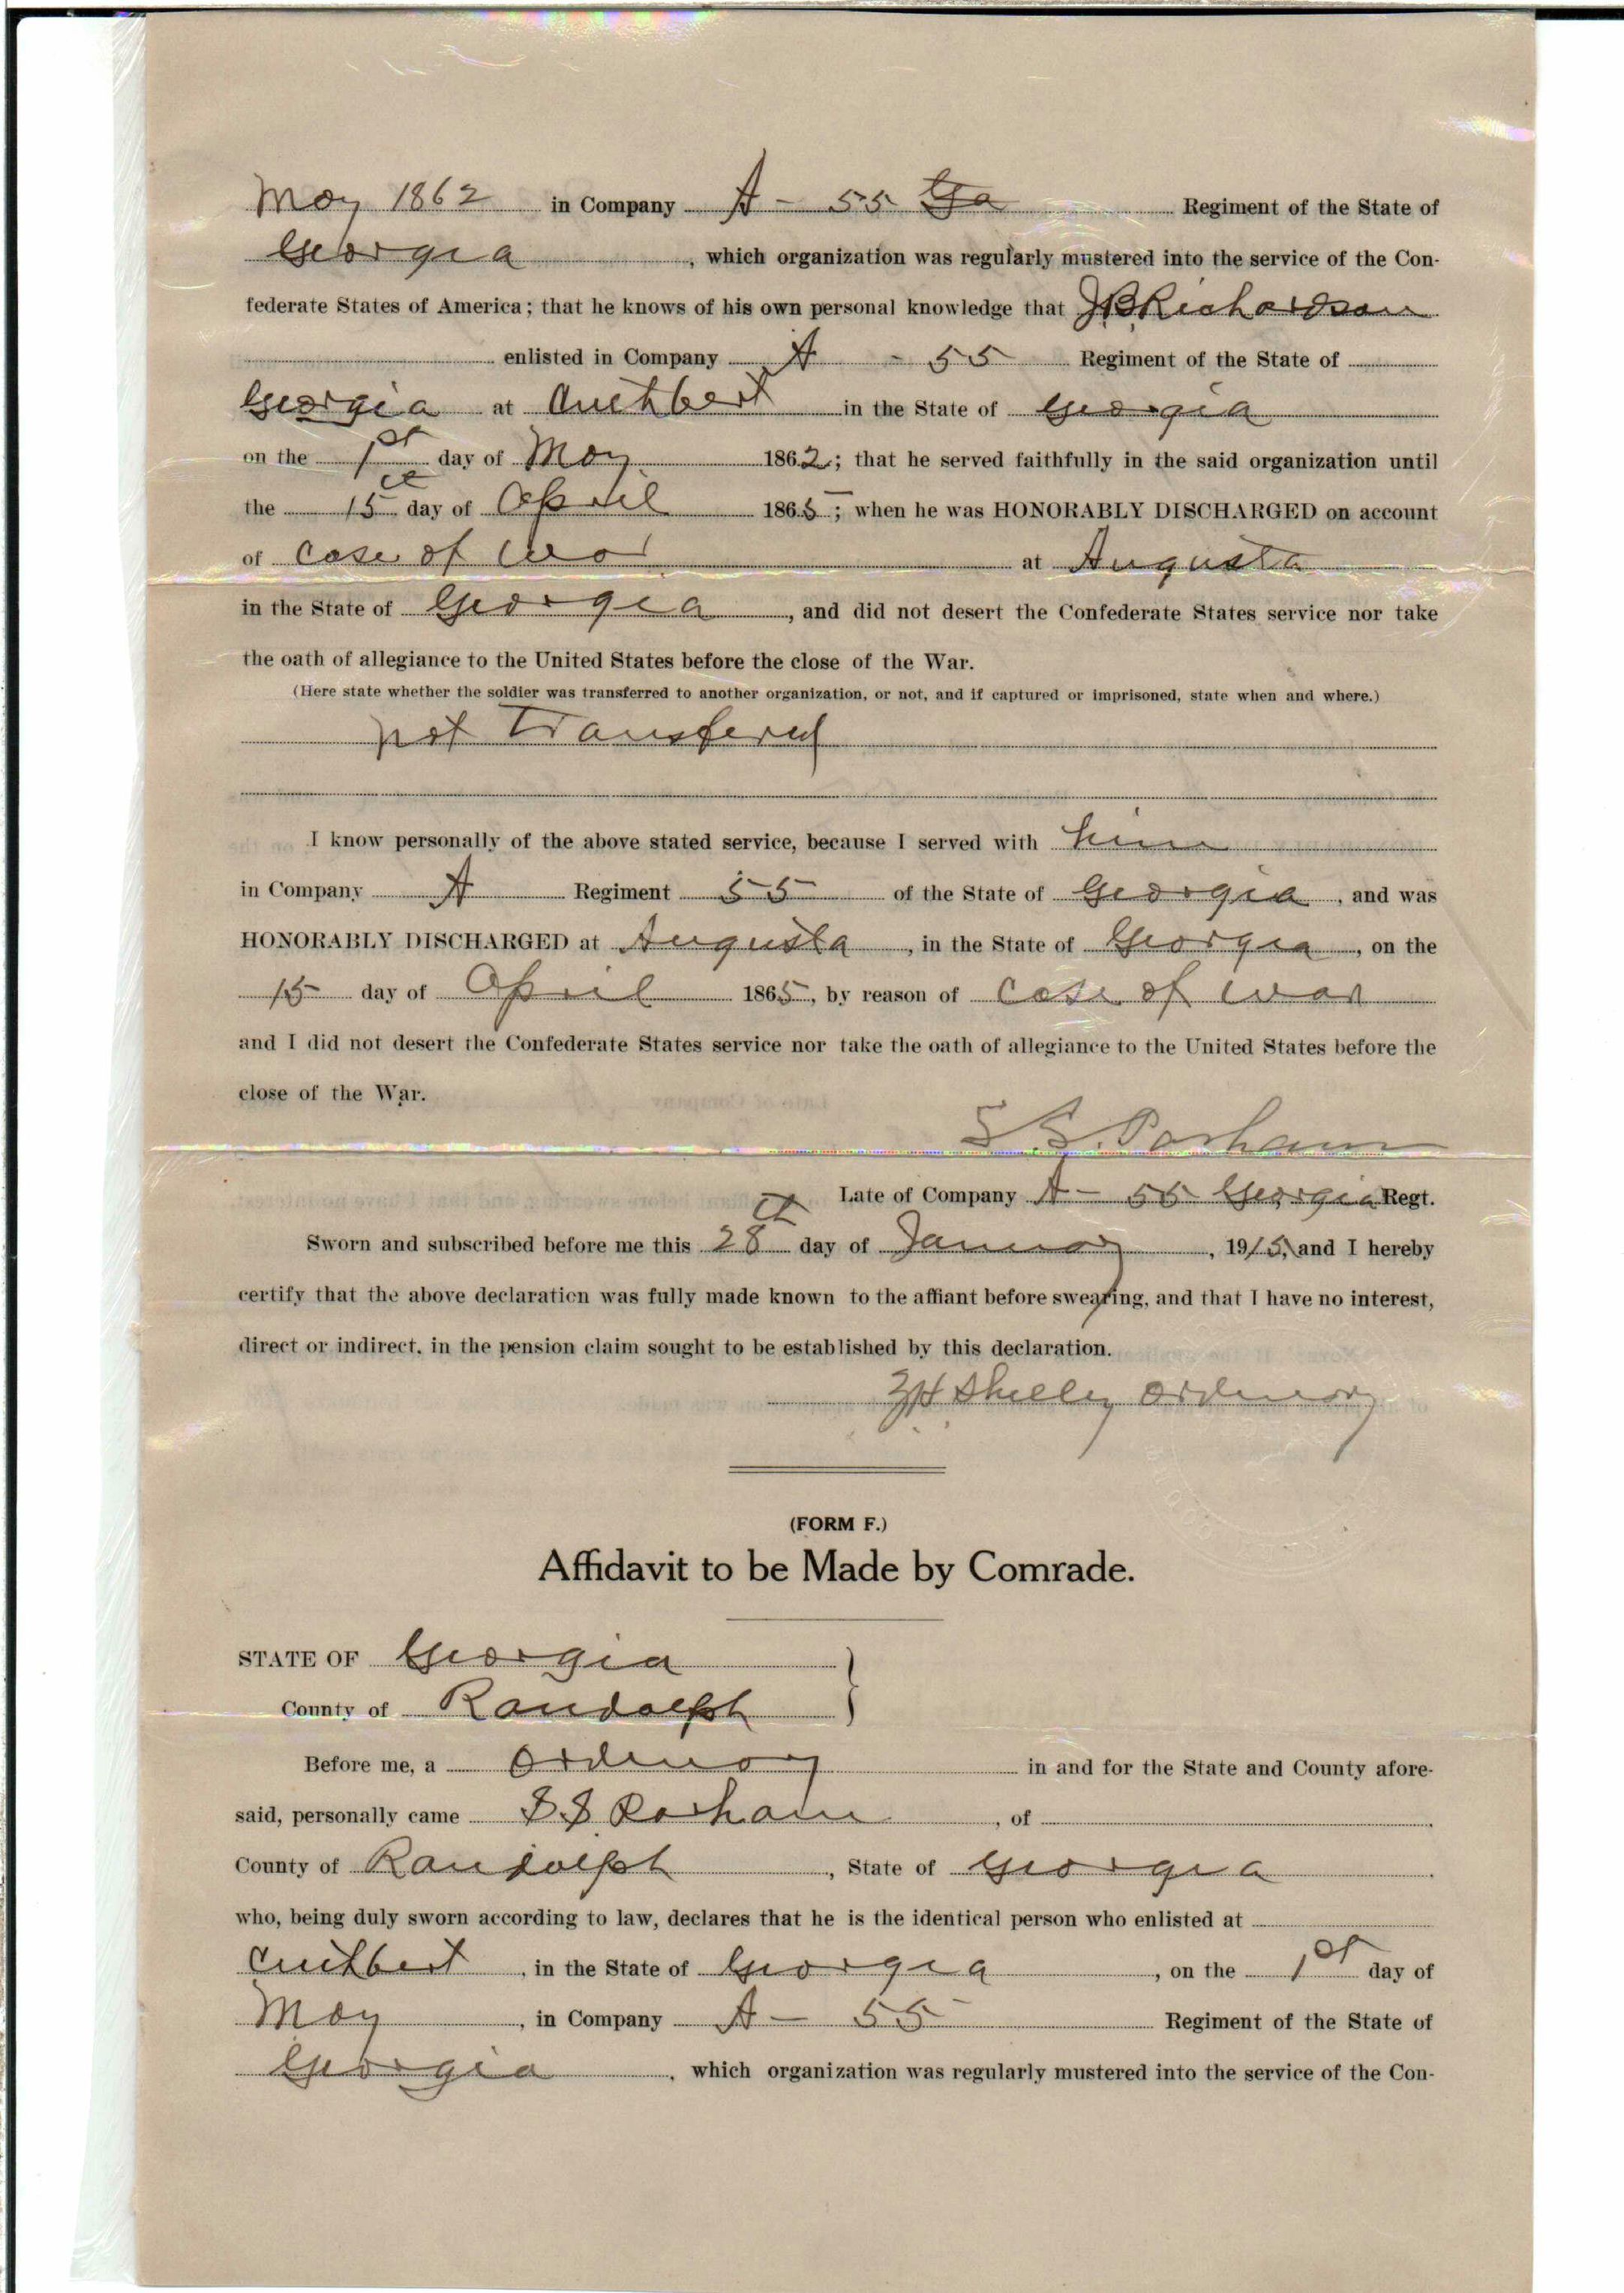 May 1862 in Company A - 55 Ga Regiment of the State of
Georgia, which organization was regularly mustered into the service of the Con-
federate States of America; that he knows of his own personal knowledge that J B Richardson
enlisted in Company A - 55 Regiment of the State of
Georgia at Cuthbert in the State of Georgia
on the 1st day of May 1862; that he served faithfully in the said organization until
the 15th day of April 1865; when he was HONORABLY DISCHARGED on account
of Close of War at Augusta
in the State of Georgia, and did not desert the Confederate States service nor take
the oath of allegiance to the United States before the close of the War.
(Here state whether the soldier was transferred to another organization, or not, and if captured or imprisoned, state when and where.)
not Transfered
I know personally of the above stated service, because I served with him
in Company A Regiment 55 of the State of Georgia, and was
HONORABLY DISCHARGED at Augusta, in the State of Georgia, on the
15 day of April 1865, by reason of Close of war
and I did not desert the Confederate States service nor take the oath of allegiance to the United States before the
close of the War.
S. S. Parham
Late of Company A - 55 Georgia Regt.
Sworn and subscribed before me this 28th day of January, 1915, and I hereby
certify that the above declaration was fully made known to the affiant before swearing, and that I have no interest,
direct or indirect, in the pension claim sought to be established by this declaration.
Shelley Ordinary
(FORM F.)
Affidavit to be Made by Comrade.
STATE OF Georgia
County of Randolph
Before me, a Ordinary in and for the State and County afore-
said, personally came S S Parham, of
County of Randolph, State of Georgia.
who, being duly sworn according to law, declares that he is the identical person who enlisted at
Cuthbert, in the State of Georgia, on the 1st day of
May, in Company A - 55 Regiment of the State of
Georgia, which organization was regularly mustered into the service of the Con-